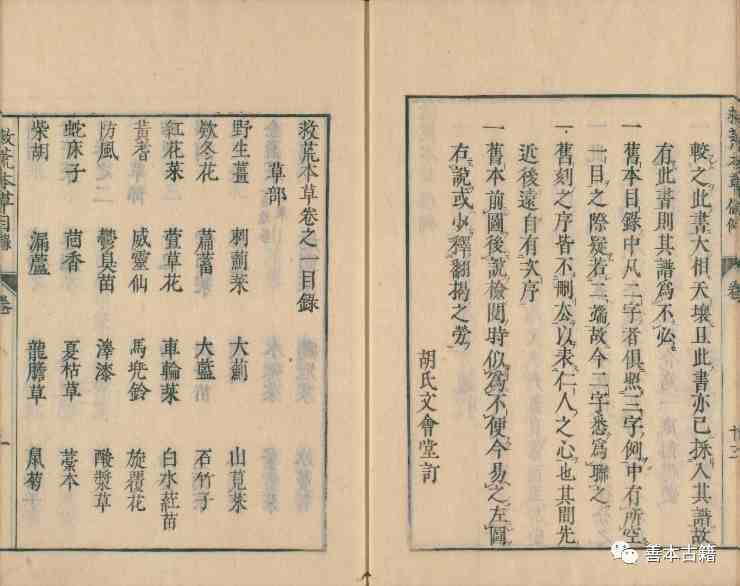 較之此書大相天壤且此書亦已採入其譜故
有此書則其譜爲不必
一舊本目錄中凡二字者俱照三字例中有所空
一目之際疑若二端故今二字悉爲聯之
一舊刻之序皆不刪去以表仁人之心也其間先
近後遠自有次序
一舊本前圖後說檢閱時似爲不便今易之左圖
右說或少釋翻揭之勞
胡氏文會堂訂
救荒本草卷之一目錄
草部
野生薑 刺薊菜 大薊 山莧菜
欵冬花 萹蓄 大藍 石竹子
紅花菜 萱草花 車輪菜 白水葒苗
黃耆 威靈仙 馬兠鈴 旋覆花
防風 鬱臭苗 澤漆 酸漿草
蛇床子 茴香 夏枯草 藁本
柴胡 漏蘆 龍膽草 鼠菊
救荒本草目錄 卷 一
善本古籍